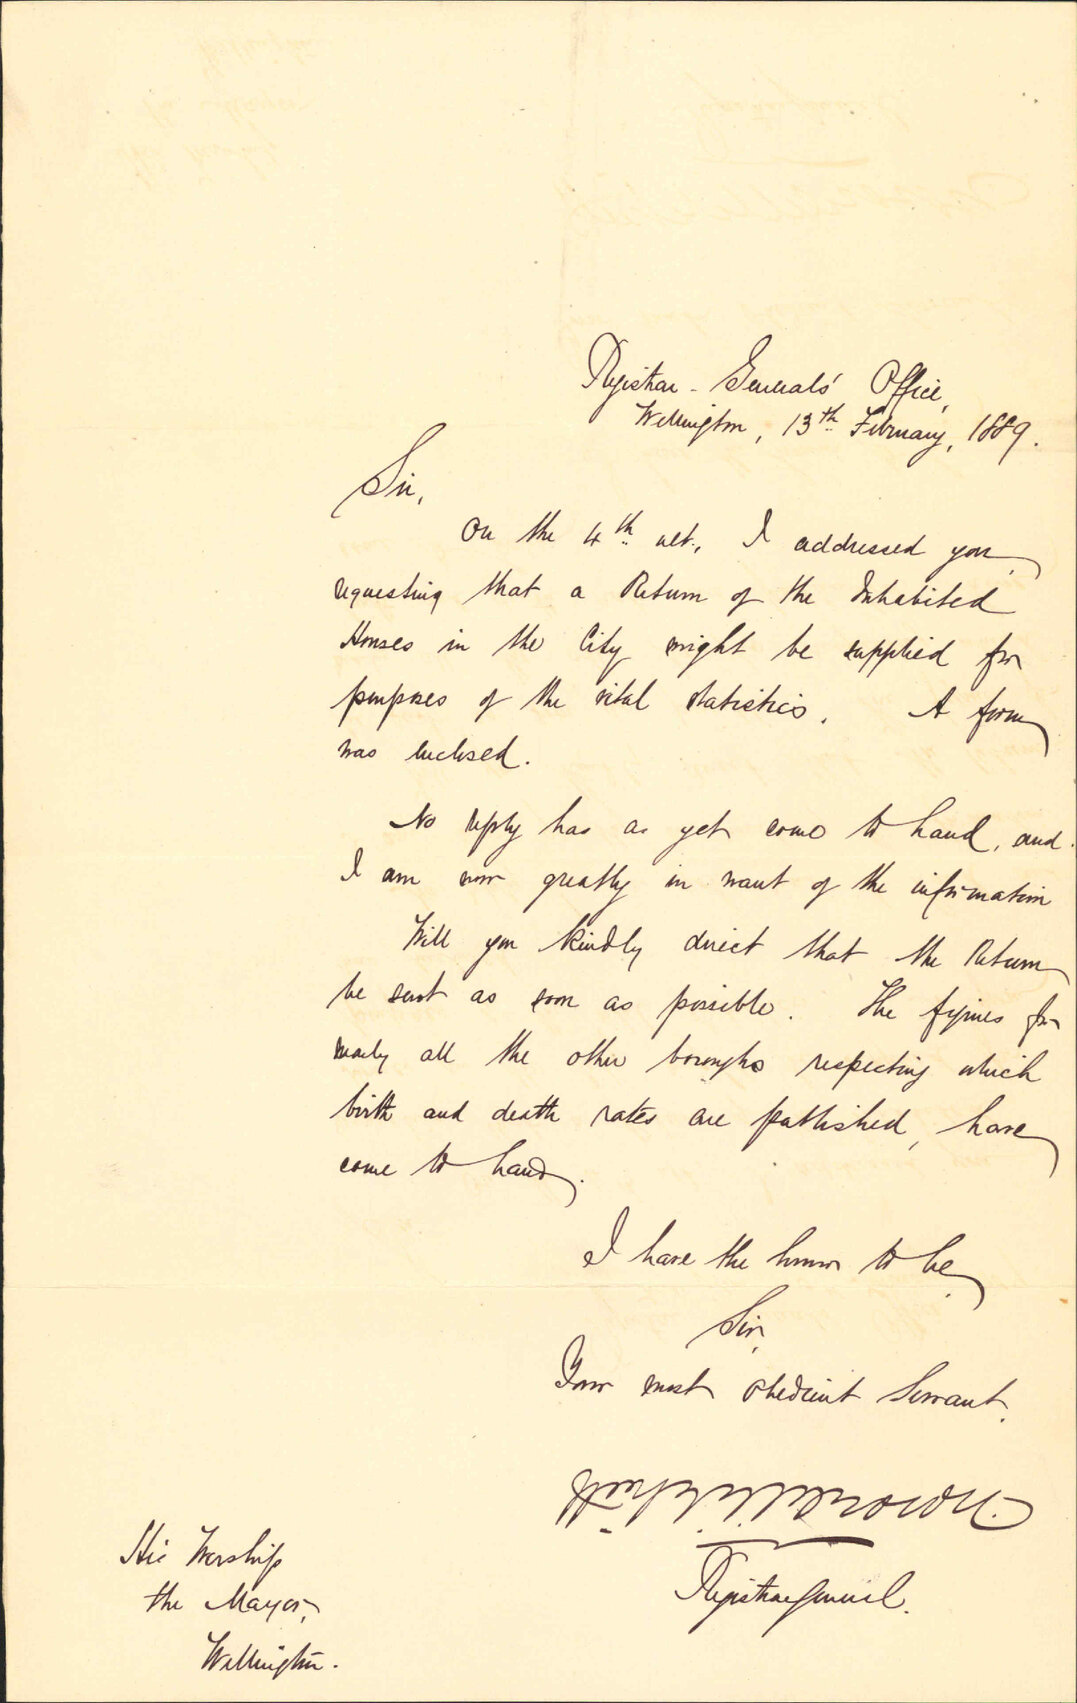 Registrar-Generals' Office,
Wellington, 13th February, 1889.
Sir,
On the 4th ult., I addressed you,
requesting that a Return of the Inhabited
Houses in the City might be supplied for
purposes of the vital statistics. A form
was enclosed.
No reply has as yet come to hand, and
I am now greatly in want of the information
Will you kindly direct that the Return
be sent as soon as possible. The figures for
nearly all the other boroughs respecting which
birth and death rates are published, have
come to hand.
I have the honor to be,
Sir,
Your most obedient Servant.
Registrar General.
His Worship
the Mayor,
Wellington.